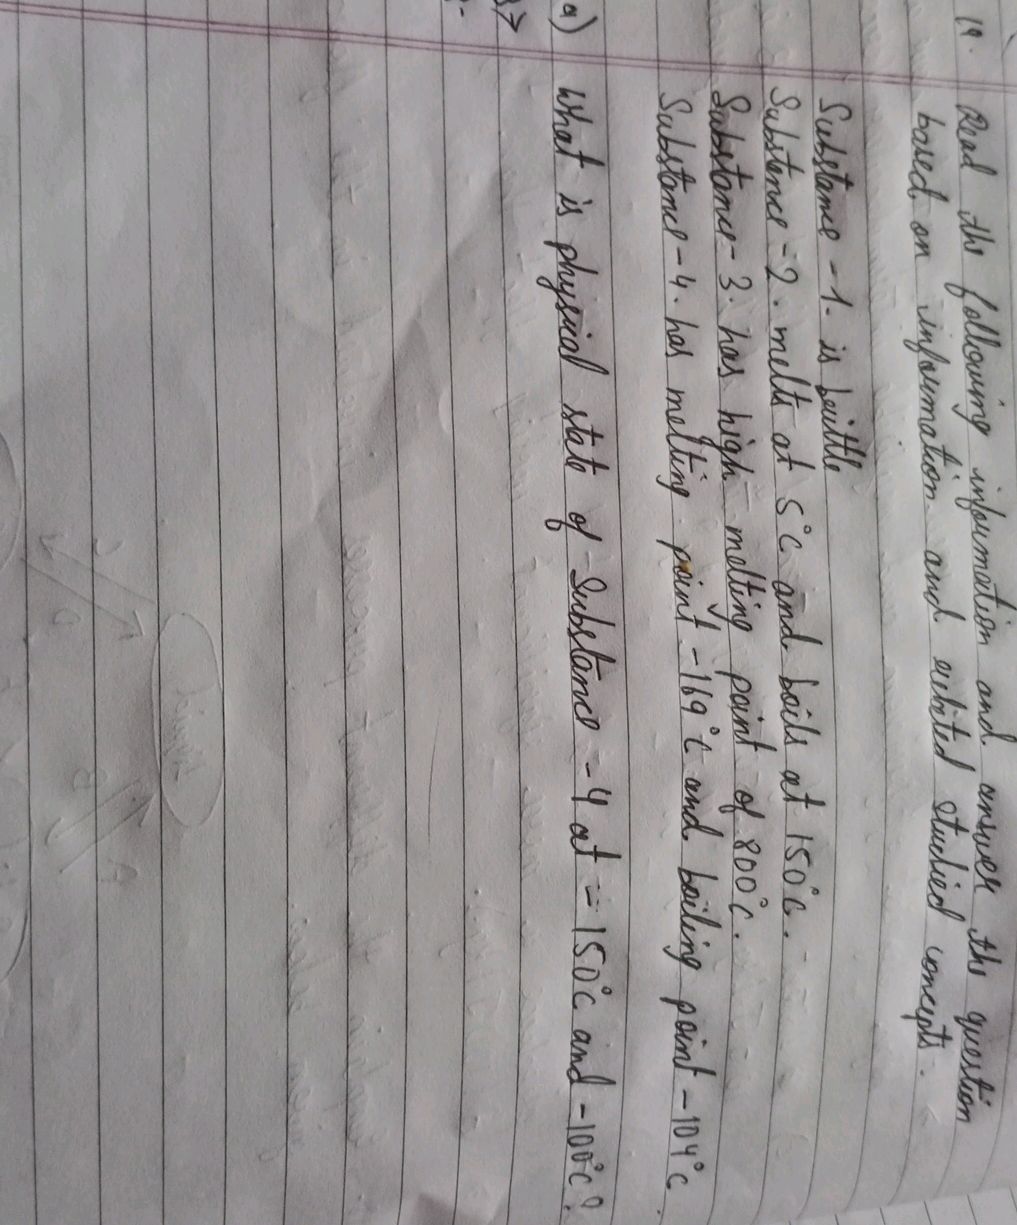 19. Read the following information and answer the question
based on information and related studied concepts.
Substance - 1. is brittle
Substance - 2. melts at 5°C and boils at 150°C.
Substance - 3. has high melting point of 800°C.
Substance - 4. has melting point -169°C and boiling point -104°C.
a) What is physical state of Substance - 4 at -150°C and -100°C?